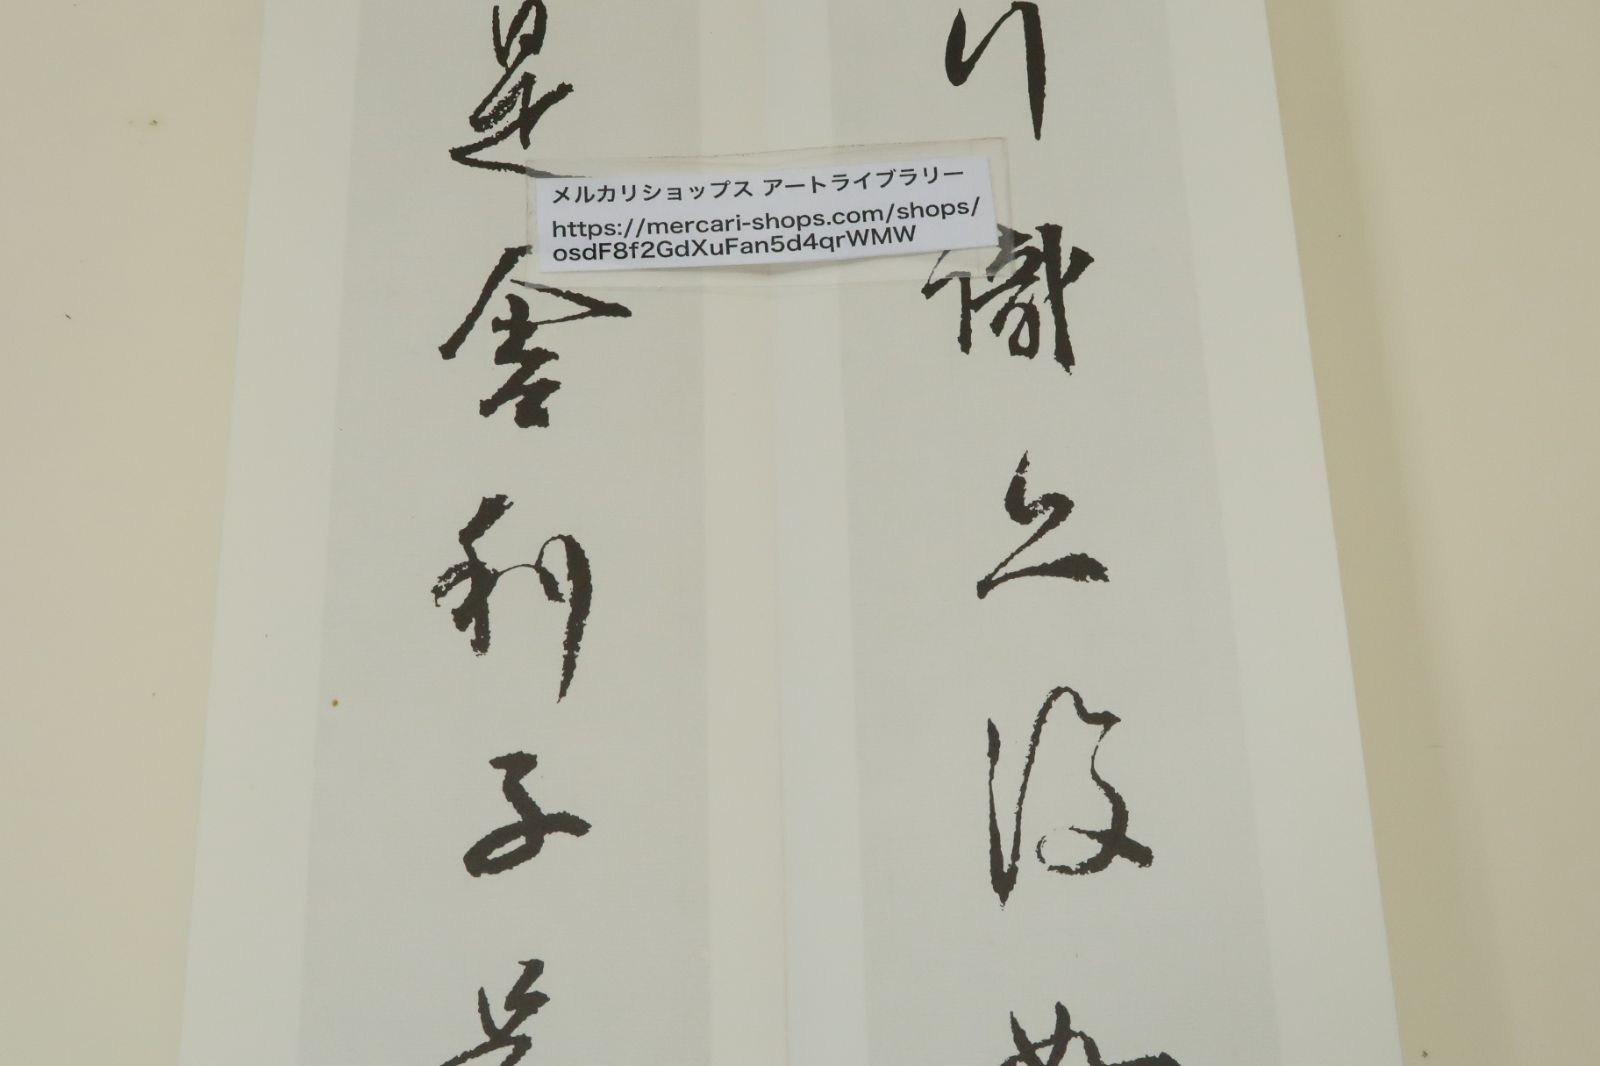 行識亦復如
是舍利子是
メルカリショップス アートライブラリー
https://mercari-shops.com/shops/
osdF8f2GdXuFan5d4qrWMW